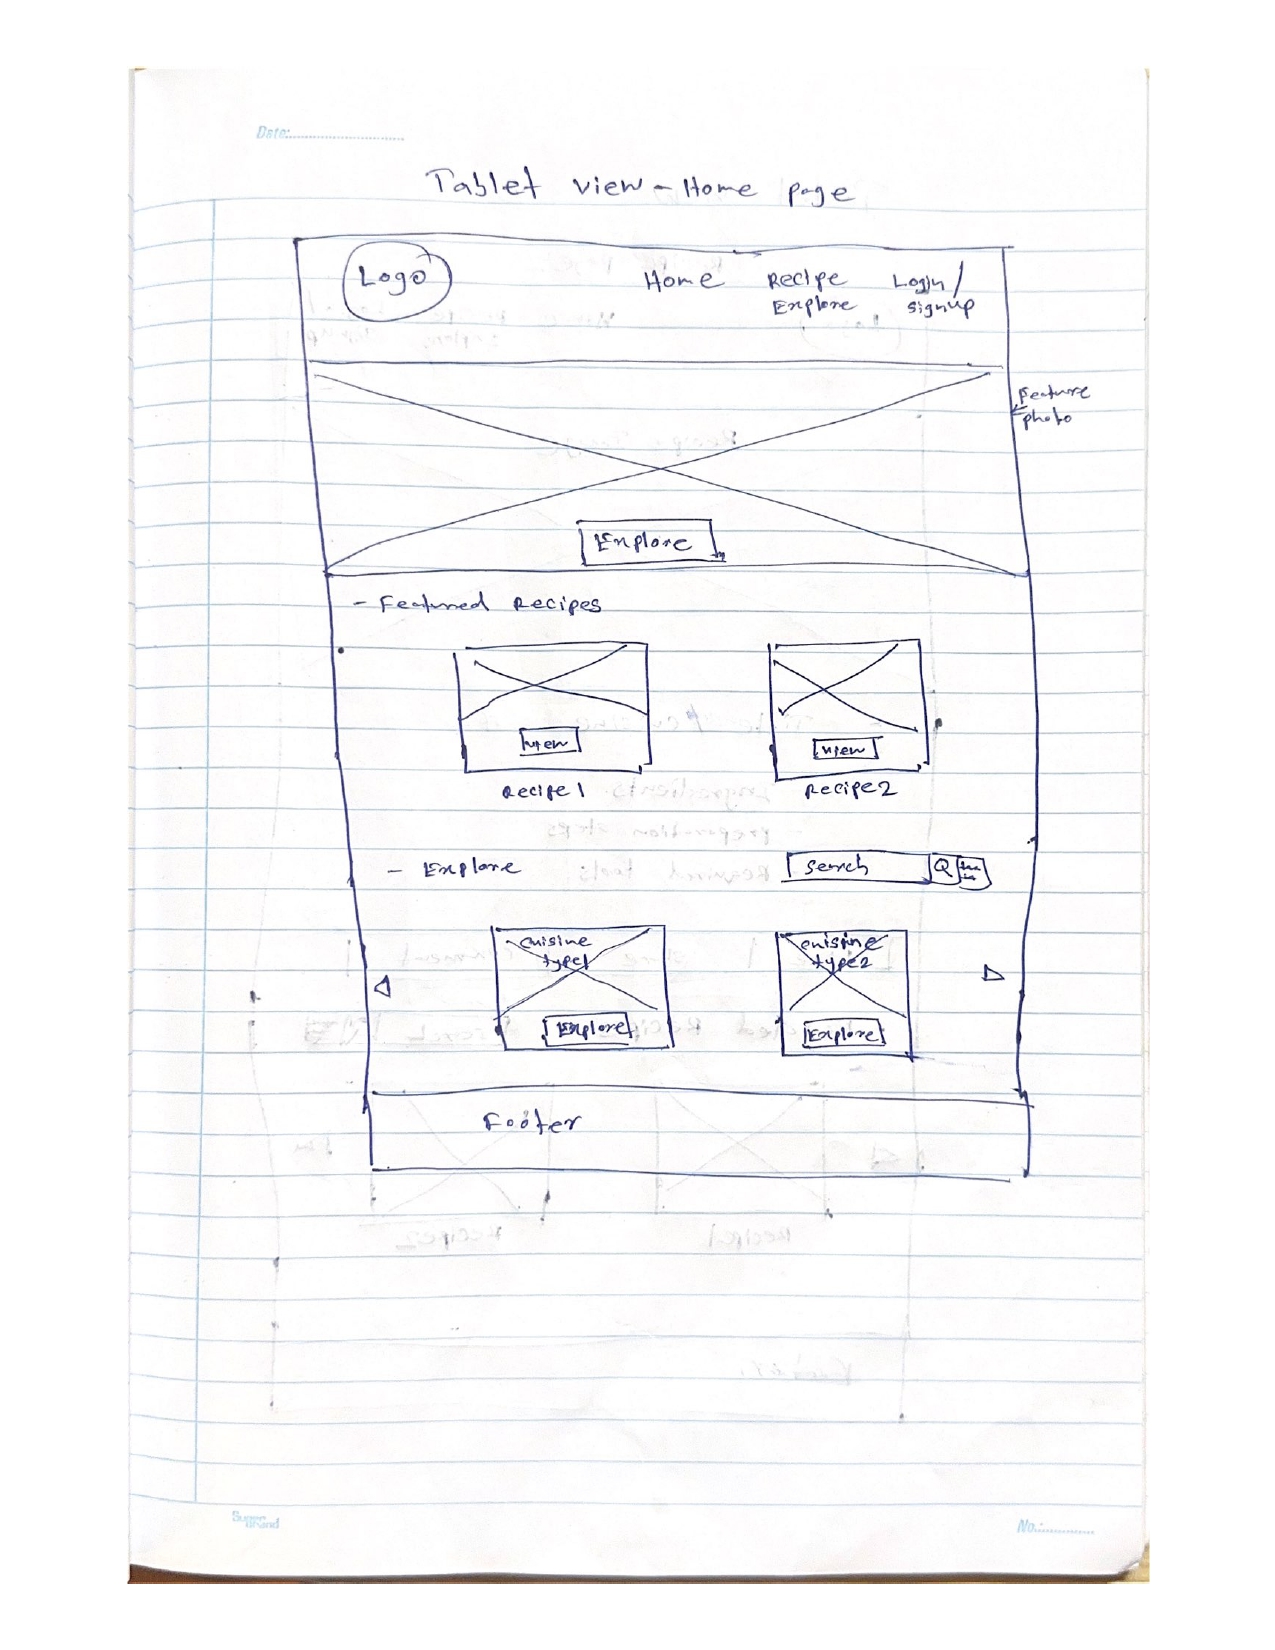 Date:
Tablet view - Home page
Logo
Home
Recipe
Explore
Login /
signup
Feature
photo
Explore
- Featured Recipes
view
view
Recipe 1
Recipe 2
- Explore
Search
cuisine
type1
cuisine
type2
Explore
Explore
Footer
Super
Brand
No.: